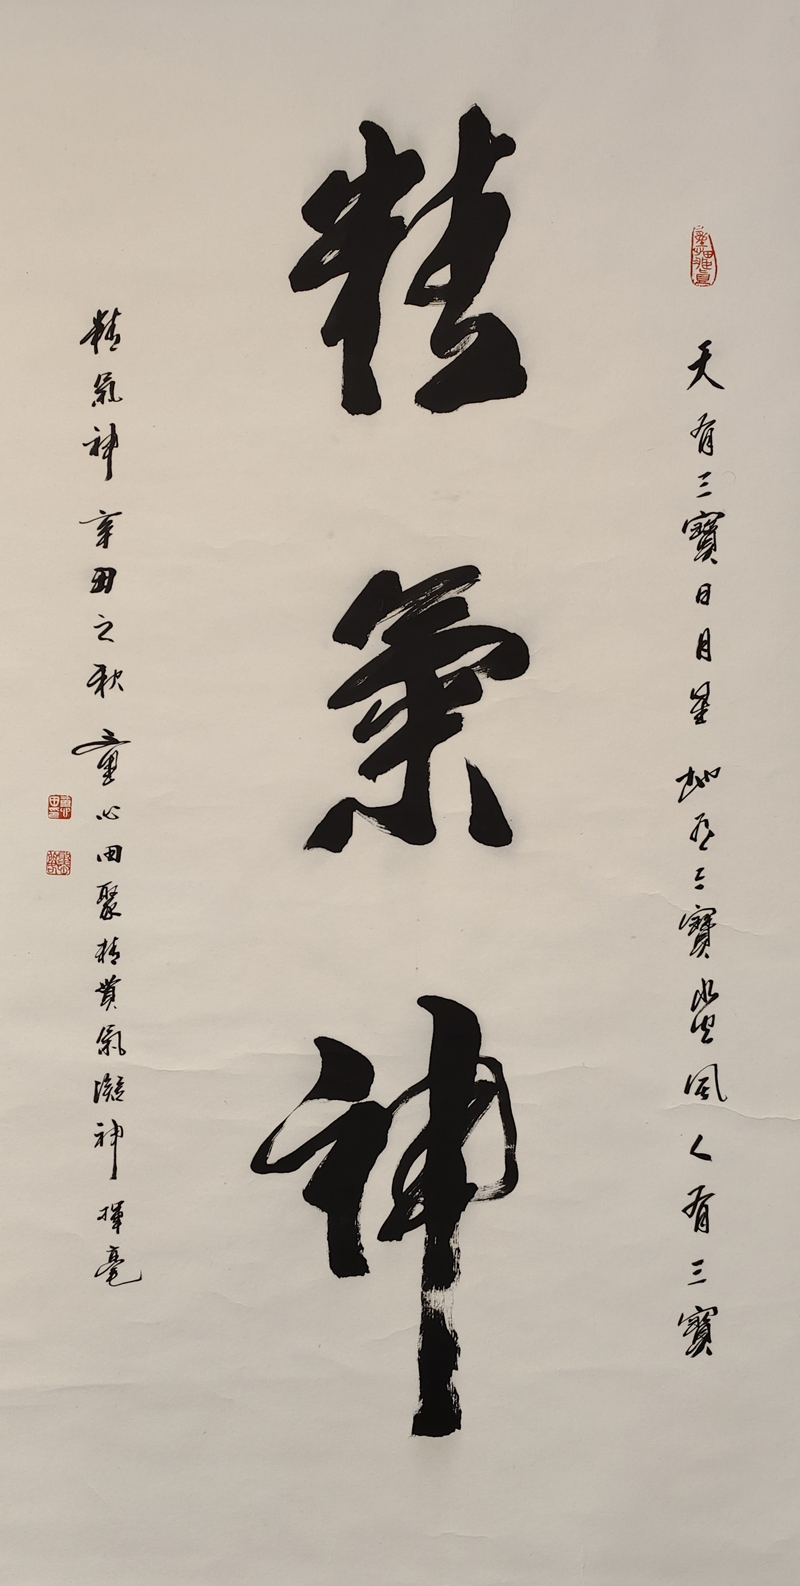 天有三寶日月星地有三寶水火風人有三寶
精氣神
精氣神辛丑之秋童心田聚精貫氣凝神揮毫